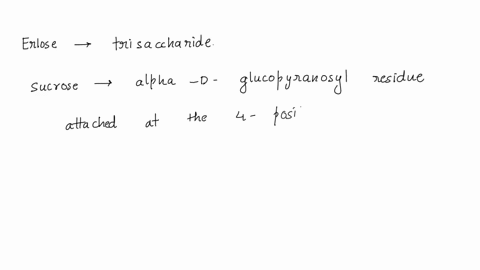 Erlose → trisaccharide.
Sucrose → alpha -D- glucopyranosyl residue
attached at the 4- posi